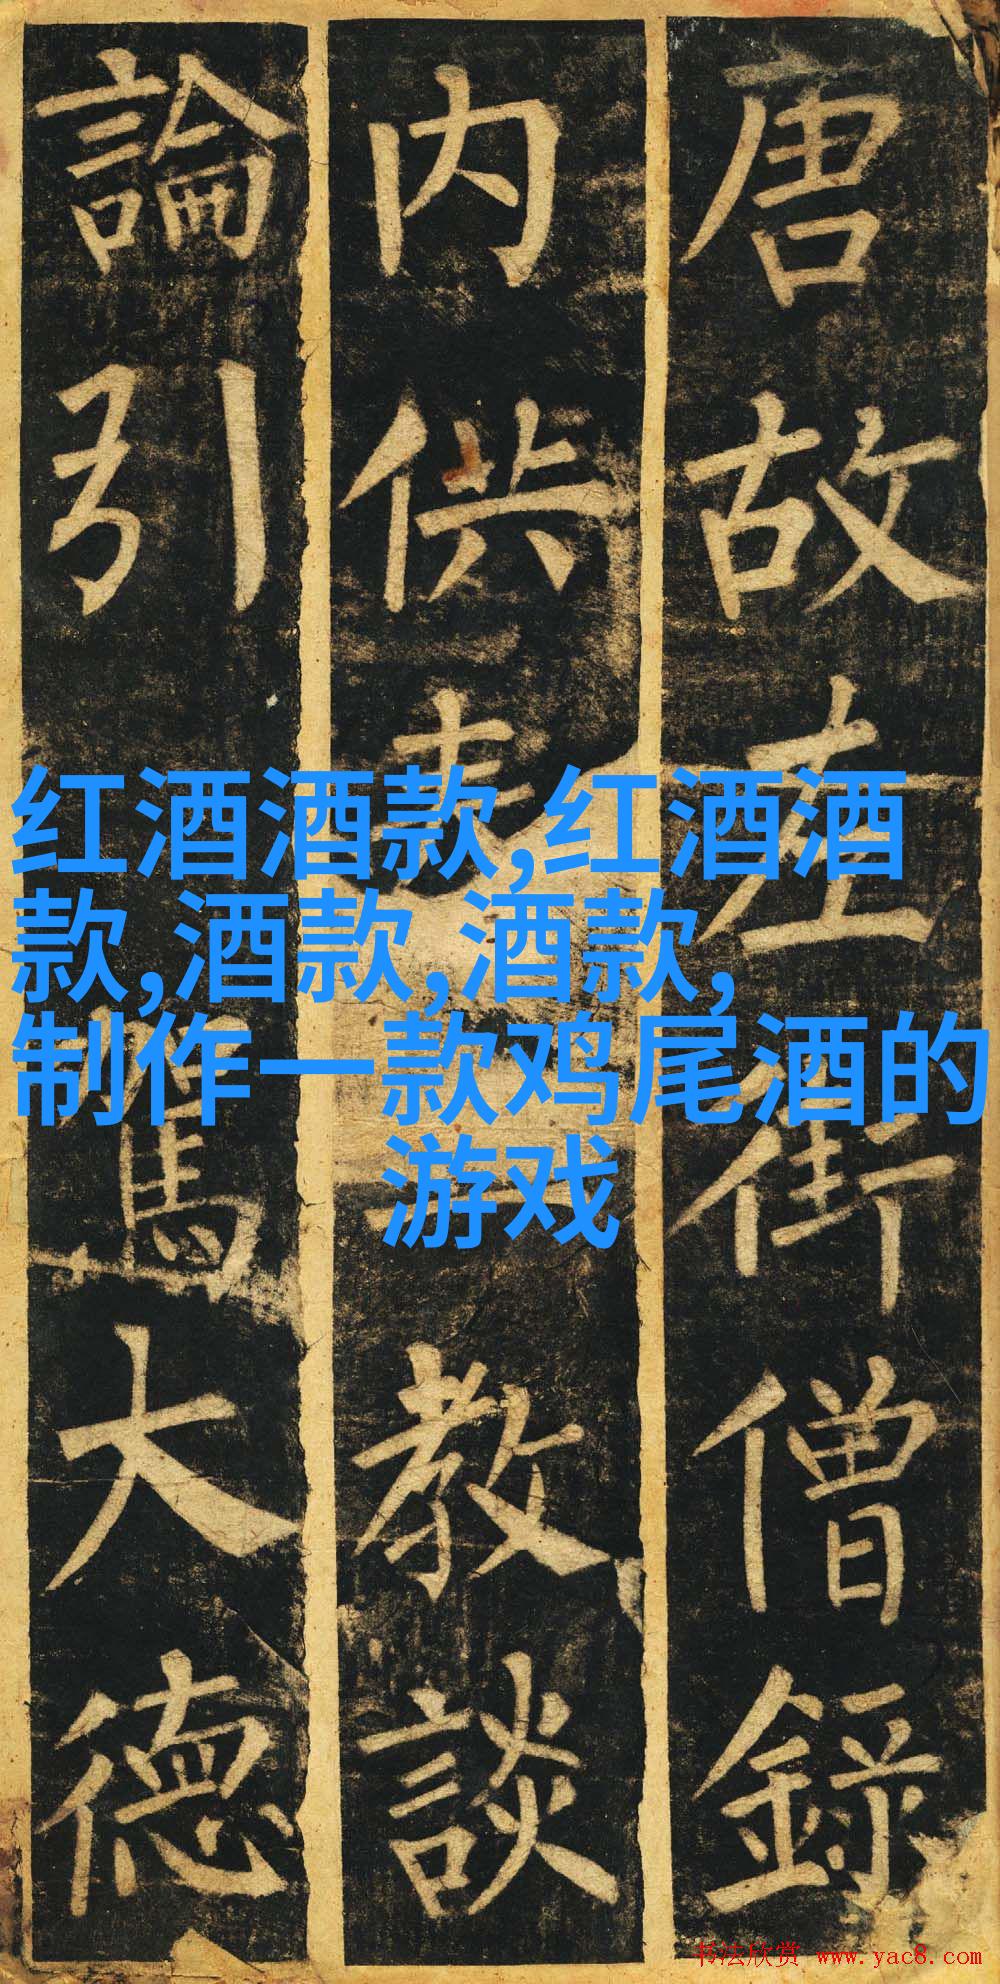 唐故左街僧錄
内供教談
論引大德
红酒酒款,红酒酒
款,酒款,酒款,
制作一款鸡尾酒的
游戏
书法欣赏 www.yac8.com